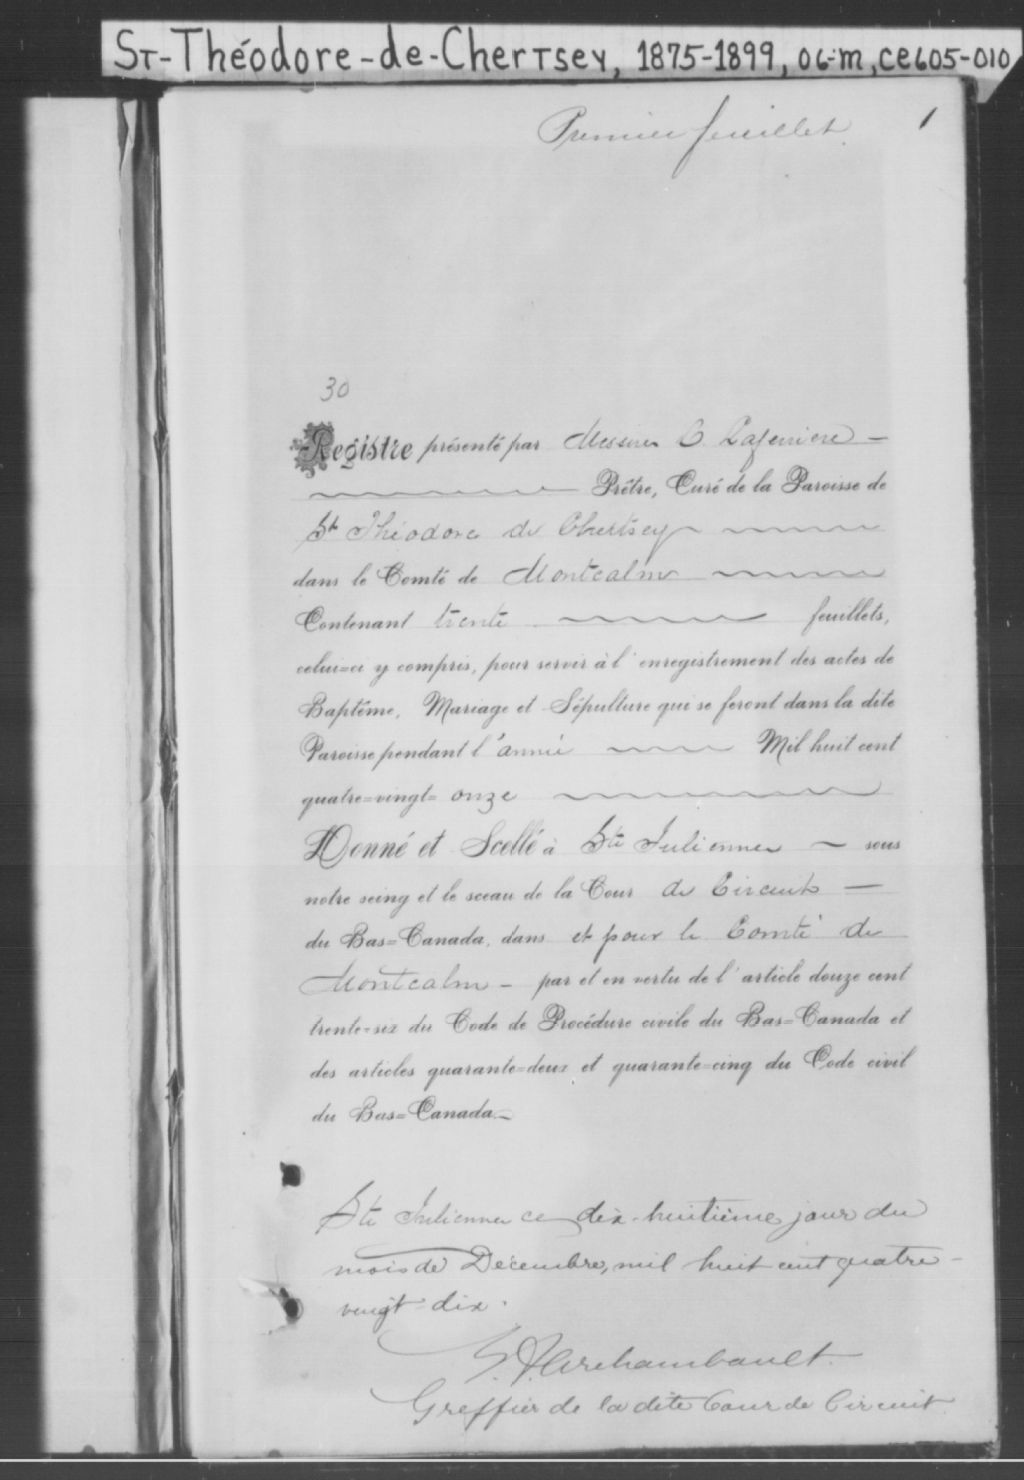 ST-Théodore-de-Chertsey, 1875-1899, 06-m, CE605-010
Premier feuillet. 1
30
Registre présenté par Messire C. Laferriere —
Prêtre, Curé de la Paroisse de
St Théodore de Chertsey
dans le Comté de Montcalm
Contenant trente feuillets,
celui=ci y compris, pour servir à l'enregistrement des actes de
Baptême, Mariage et Sépulture qui se feront dans la dite
Paroisse pendant l'année Mil huit cent
quatre=vingt= onze
Donné et Scellé à Ste Julienne — sous
notre seing et le sceau de la Cour de Circuit —
du Bas=Canada, dans et pour le Comté de
Montcalm — par et en vertu de l'article douze cent
trente=six du Code de Procédure civile du Bas=Canada et
des articles quarante=deux et quarante=cinq du Code civil
du Bas=Canada.—
Ste Julienne ce dix-huitième jour du
mois de Décembre, mil huit cent quatre-
vingt dix.
Archambault
Greffier de la dite Cour de Circuit